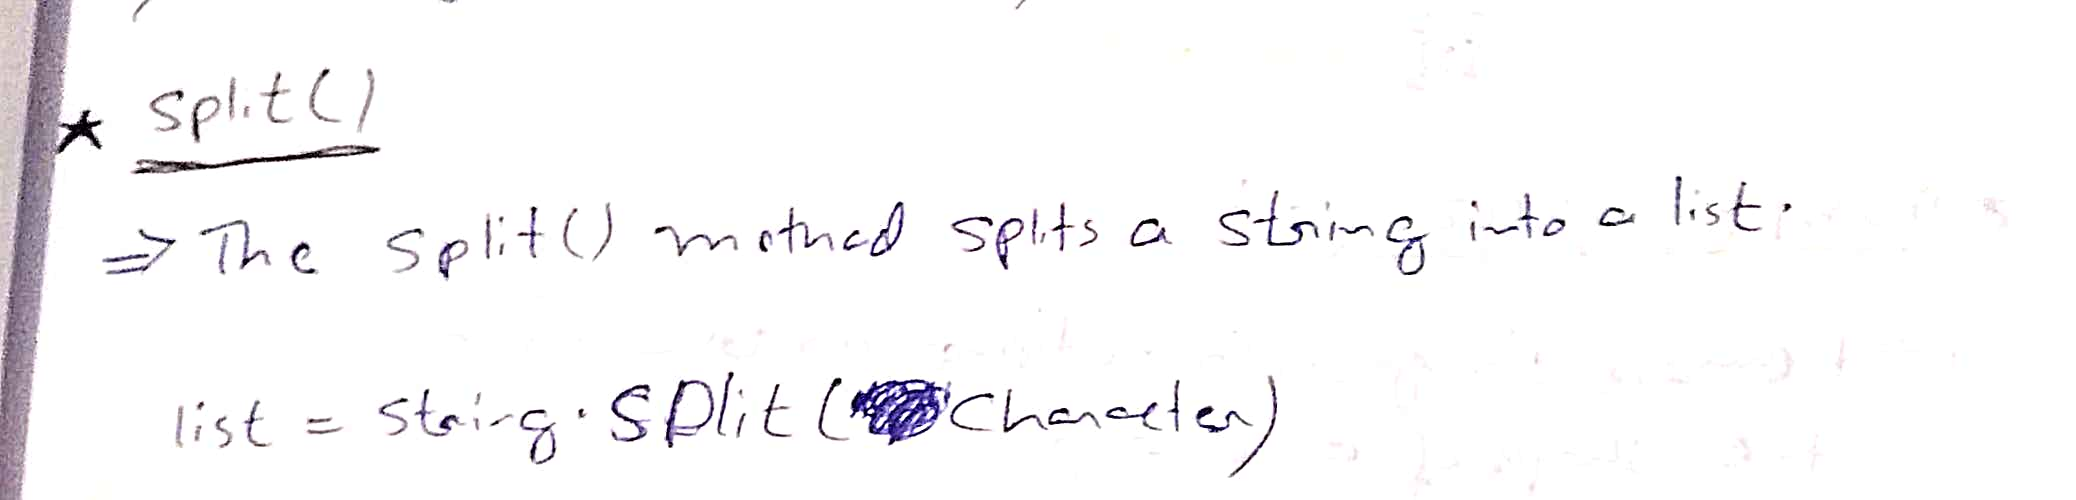 ★ split()
⇒ The split() method splits a string into a list.
list = string.split(character)